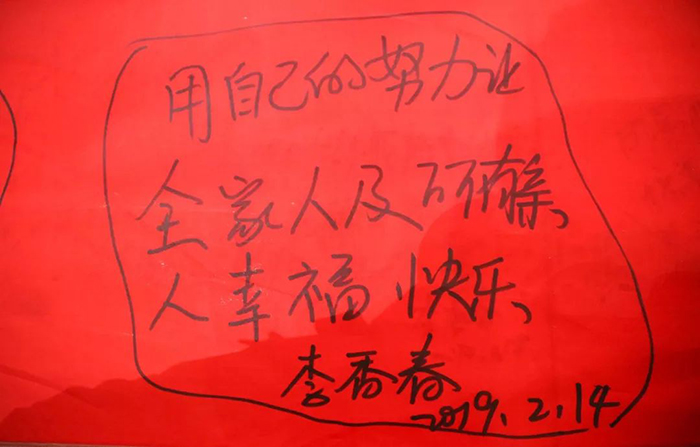 用自己的努力让
全家人及所有亲
人幸福快乐
李香春
2019.2.14